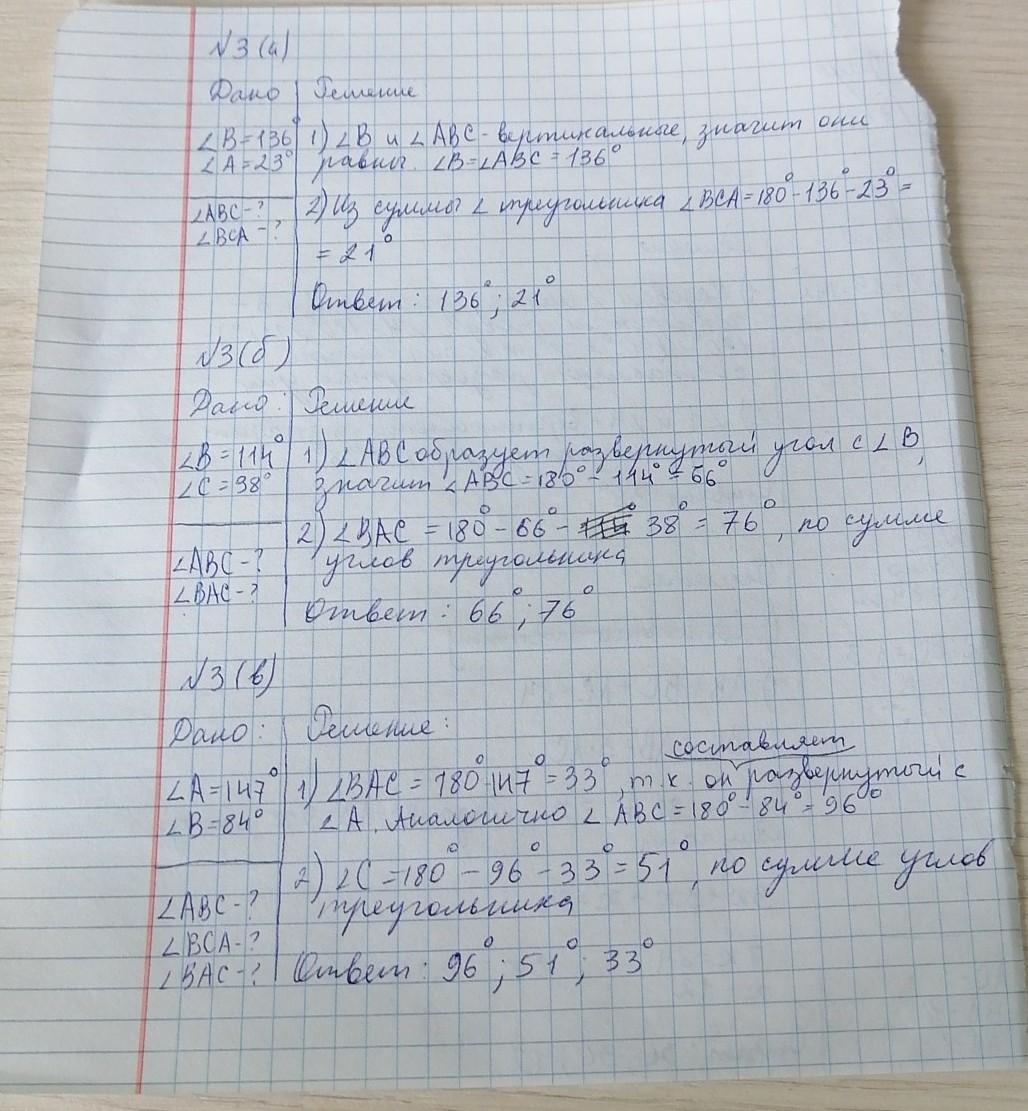 №3(а)
Дано Решение
∠B=136° 1) ∠B и ∠ABC - вертикальные, значит они
∠A=23° равны. ∠B=∠ABC=136°
∠ABC-? 2) Из суммы ∠ треугольника ∠BCA=180°-136°-23°=
∠BCA-?
=21°
Ответ: 136°; 21°
№3(б)
Дано: Решение
∠B=114° 1) ∠ABC образует развернутый угол с ∠B,
∠C=38° значит ∠ABC=180°-114°=66°
2) ∠BAC=180°-66°- 38°=76°, по сумме
∠ABC-? углов треугольника
∠BAC-?
Ответ: 66°; 76°
№3(в)
Дано: Решение:
составляет
∠A=147° 1) ∠BAC=180°-147°=33°, т.к. он развернутый с
∠B=84° ∠A. Аналогично ∠ABC=180°-84°=96°
2) ∠C=180°-96°-33°=51°, по сумме углов
∠ABC-? треугольника
∠BCA-?
∠BAC-? Ответ: 96°; 51°; 33°